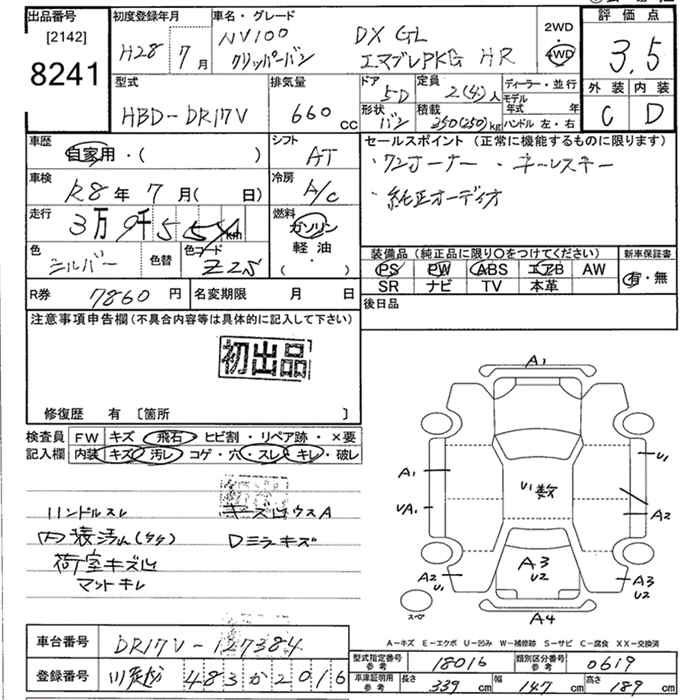 出品番号
[2142]
8241
初度登録年月
H28 7月
車名・グレード
NV100 DX GL
クリッパーバン エマブレPKG HR
2WD
4WD
評価点
3.5
外装 内装
C D
型式
HBD-DR17V
排気量
660 cc
ドア 5D
形状 バン
定員 2(4)人
積載 350(250)kg
ディーラー・並行
モデル年式 年
ハンドル 左・右
車歴
自家用・( )
シフト
AT
セールスポイント(正常に機能するものに限ります)
・ワンオーナー ・キーレスキー
・純正オーディオ
車検
R8年 7月( 日)
冷房
A/C
走行
3万9千55 km
燃料
ガソリン
軽油・
( )
色
シルバー
色替
色コード
Z2S
装備品(純正品に限り○をつけてください)
PS PW ABS エアB AW
SR ナビ TV 本革
新車保証書
有・無
R券 7860円
名変期限 月 日
後日品
注意事項申告欄(不具合内容等は具体的に記入して下さい)
初出品
修復歴 有 [箇所 ]
検査員記入欄
FW キズ・飛石・ヒビ割・リペア跡・×要
内装 キズ・汚レ・コゲ・穴・スレ・キレ・破レ
ハンドルスレ
内装汚れ
荷室キズ凹
マットキレ
Dミラキズ
A1
A1
U1
U1数
A2
A2
U1
A3
U2
A3
U2
A4
スペア
A-キズ E-エクボ U-凹み W-補修跡 S-サビ C-腐食 XX-交換済
車台番号
DR17V-127384
登録番号
川越 483 か 2016
型式指定番号 参考 18016
類別区分番号 参考 0619
車庫証明用参考 長さ 339 cm 幅 147 cm 高さ 189 cm